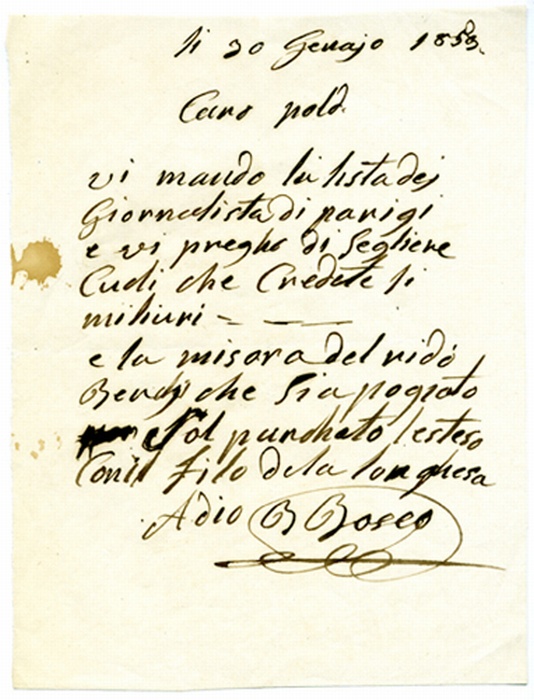 li 30 Genajo 1853.
Caro pold.
vi mando la lista dej
Giornalista di parigi
e vi pregho di Segliere
Cudi che Credete li
miliuri - —
e la misora del ridó
che Sia pogiato
Sol panchato lesteso
Con il filo dela longhesa
Adio B Bosco